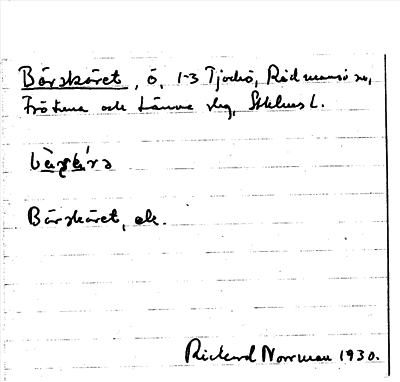 Bärskäret, ö, 1-3 Tjockö, Rådmansö sn,
Frötuna och Länna skg, Sthlms L.
Bärskäret, ek.
Rickard Norrman 1930.